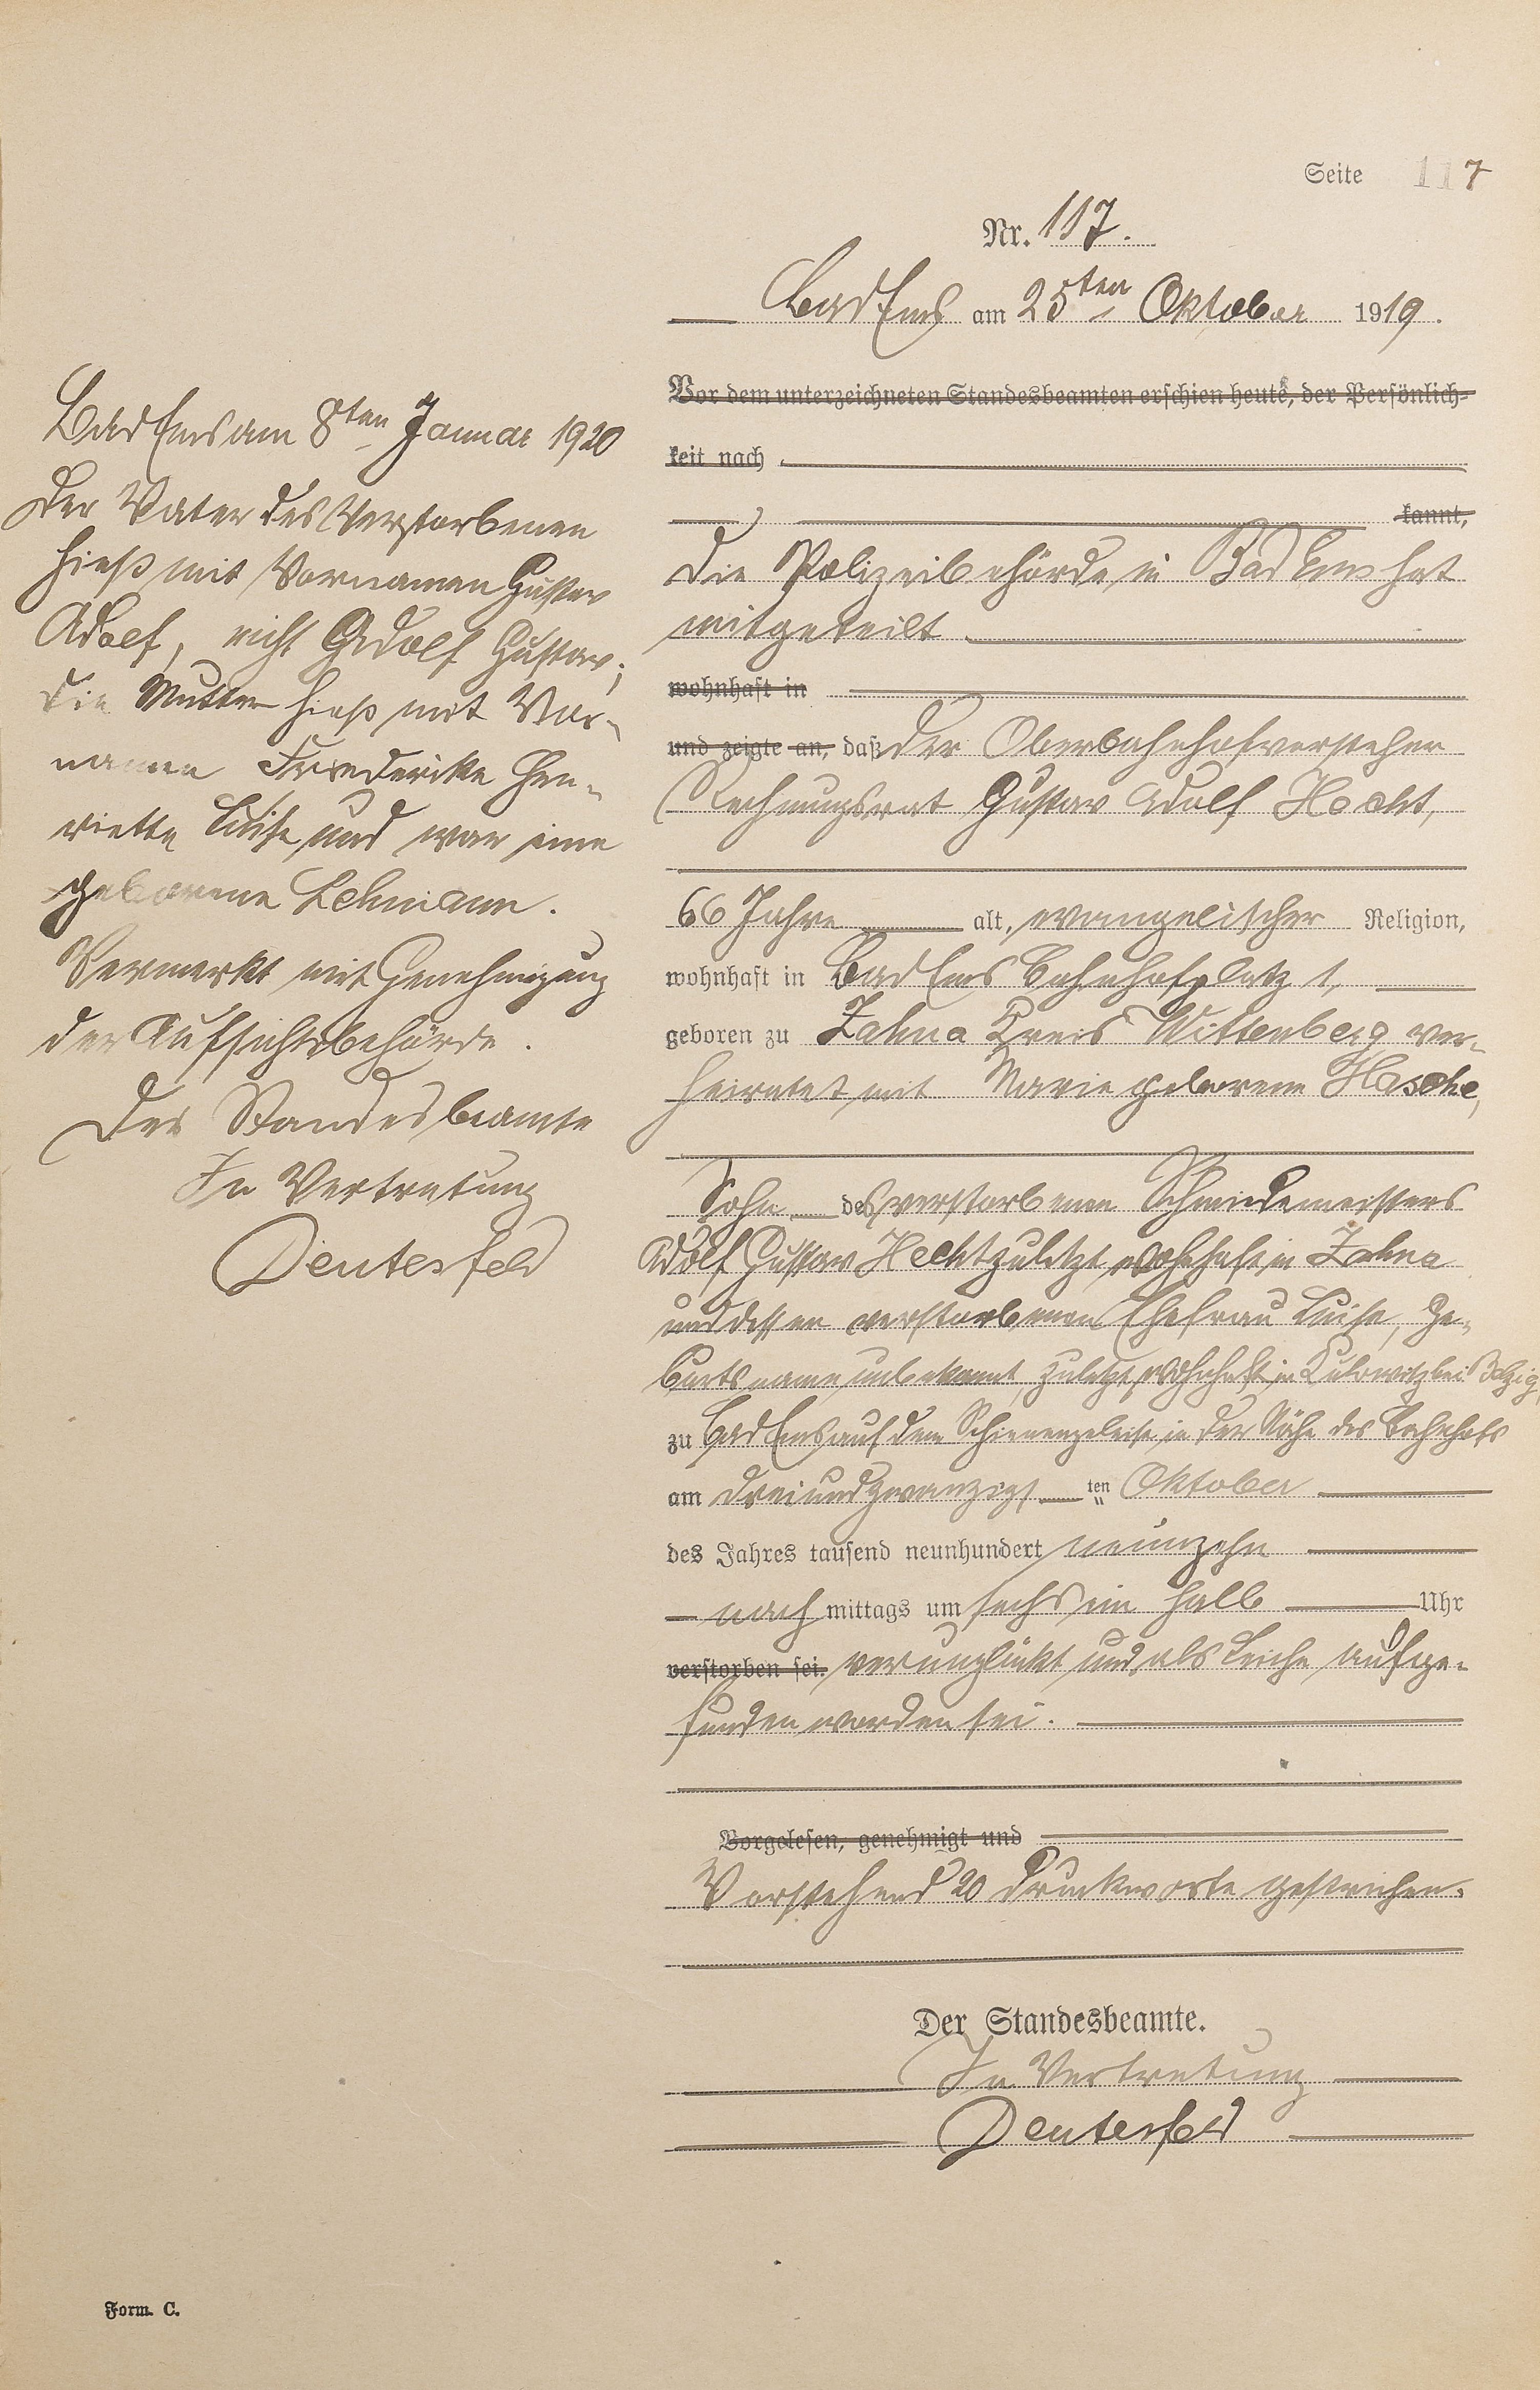 Seite 117
Nr. 117.
Bad Ems am 25ten Oktober 1919.
Vor dem unterzeichneten Standesbeamten erschien heute, der Persönlich-
keit nach
kannt,
die Polizeibehörde in Bad Ems hat
mitgeteilt
wohnhaft in
und zeigte an, daß der Oberbahnhofvorsteher
Rechnungsrat Gustav Adolf Hecht,
66 Jahre alt, evangelischer Religion,
wohnhaft in Bad Ems Bahnhofplatz 1,
geboren zu Zahna Kreis Wittenberg ver-
heiratet mit Marie geborene Hasche,
Sohn des verstorbenen Schmiedemeisters
Adolf Gustav Hecht zuletzt wohnhaft in Zahna
und dessen verstorbenen Ehefrau Luise, Ge-
burtsname unbekannt, zuletzt wohnhaft in bei Belzig,
zu Bad Ems auf dem Schienengeleise in der Nähe des Bahnhofs
am dreiundzwanzigsten Oktober
des Jahres tausend neunhundert neunzehn
nachmittags um sechs ein halb Uhr
verstorben sei. verunglückt und als Leiche aufge-
funden worden sei.
Vorgelesen, genehmigt und
Vorstehend 20 Druckworte gestrichen.
Der Standesbeamte.
In Vertretung
Deutesfeld
Bad Ems am 8ten Januar 1920
Der Vater des Verstorbenen
hieß mit Vornamen Gustav
Adolf, nicht Adolf Gustav;
die Mutter hieß mit Vor-
namen Friederike Hen-
riette Luise und war eine
geborene Lehmann.
Vermerkt mit Genehmigung
der Aufsichtsbehörde.
Der Standesbeamte
In Vertretung
Deutesfeld
Form. C.